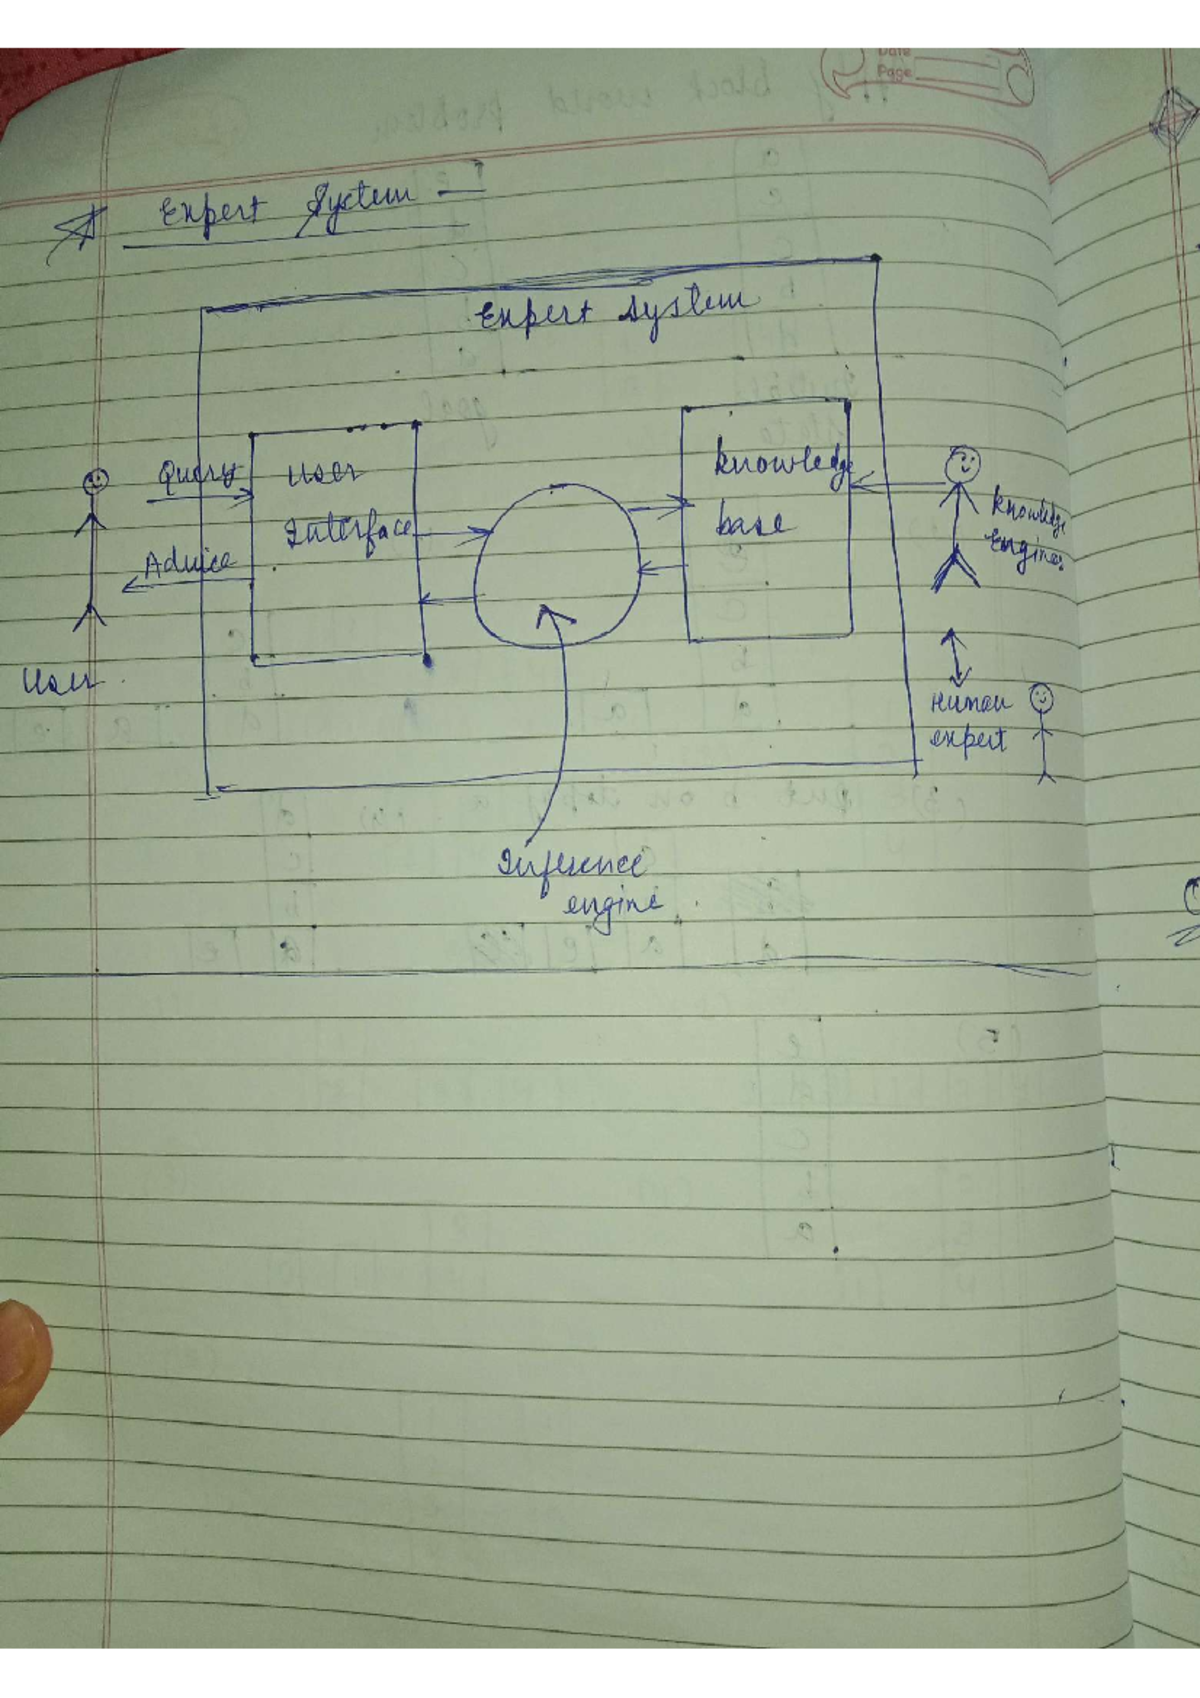 Date
Page
Expert System -
Expert System
Query
User
Interface
Advice
User
Knowledge
base
Knowledge
Engineer
Human
expert
Inference
engine